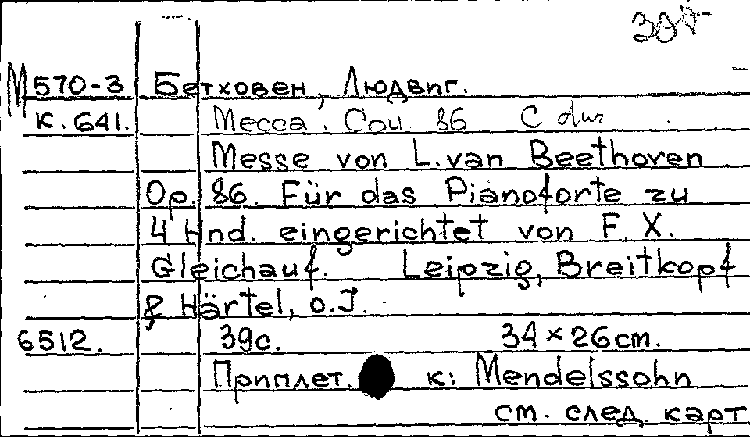 М570-3 Бетховен, Людвиг.
к. 641. Месса. Соч. 86 C dur
Messe von L. van Beethoven
Op. 86. Für das Pianoforte zu
4 Hnd. eingerichtet von F. X.
Gleichauf. Leipzig, Breitkopf
& Härtel, o. J.
6512. 39с. 34 × 26cm.
Приплет. к: Mendelssohn
см. след. карт